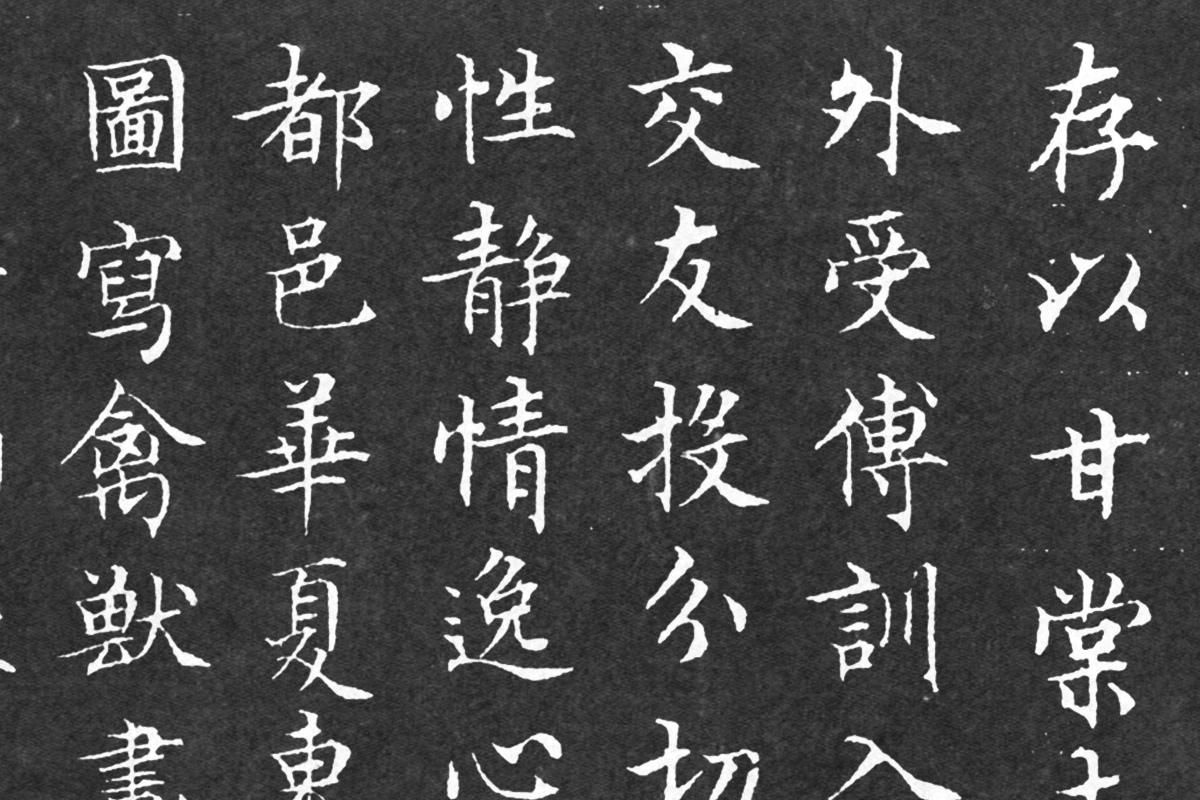 存以甘棠去
外受傅訓入
交友投分切
性静情逸心
都邑華夏東
圖寫禽獸畫